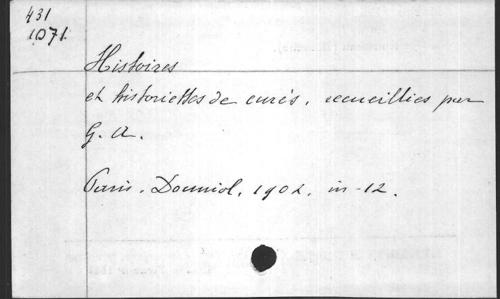 431
1071
Histoires
et historiettes de curés, recueillies par
G. A.
Paris. Douniol, 1902, in-12.